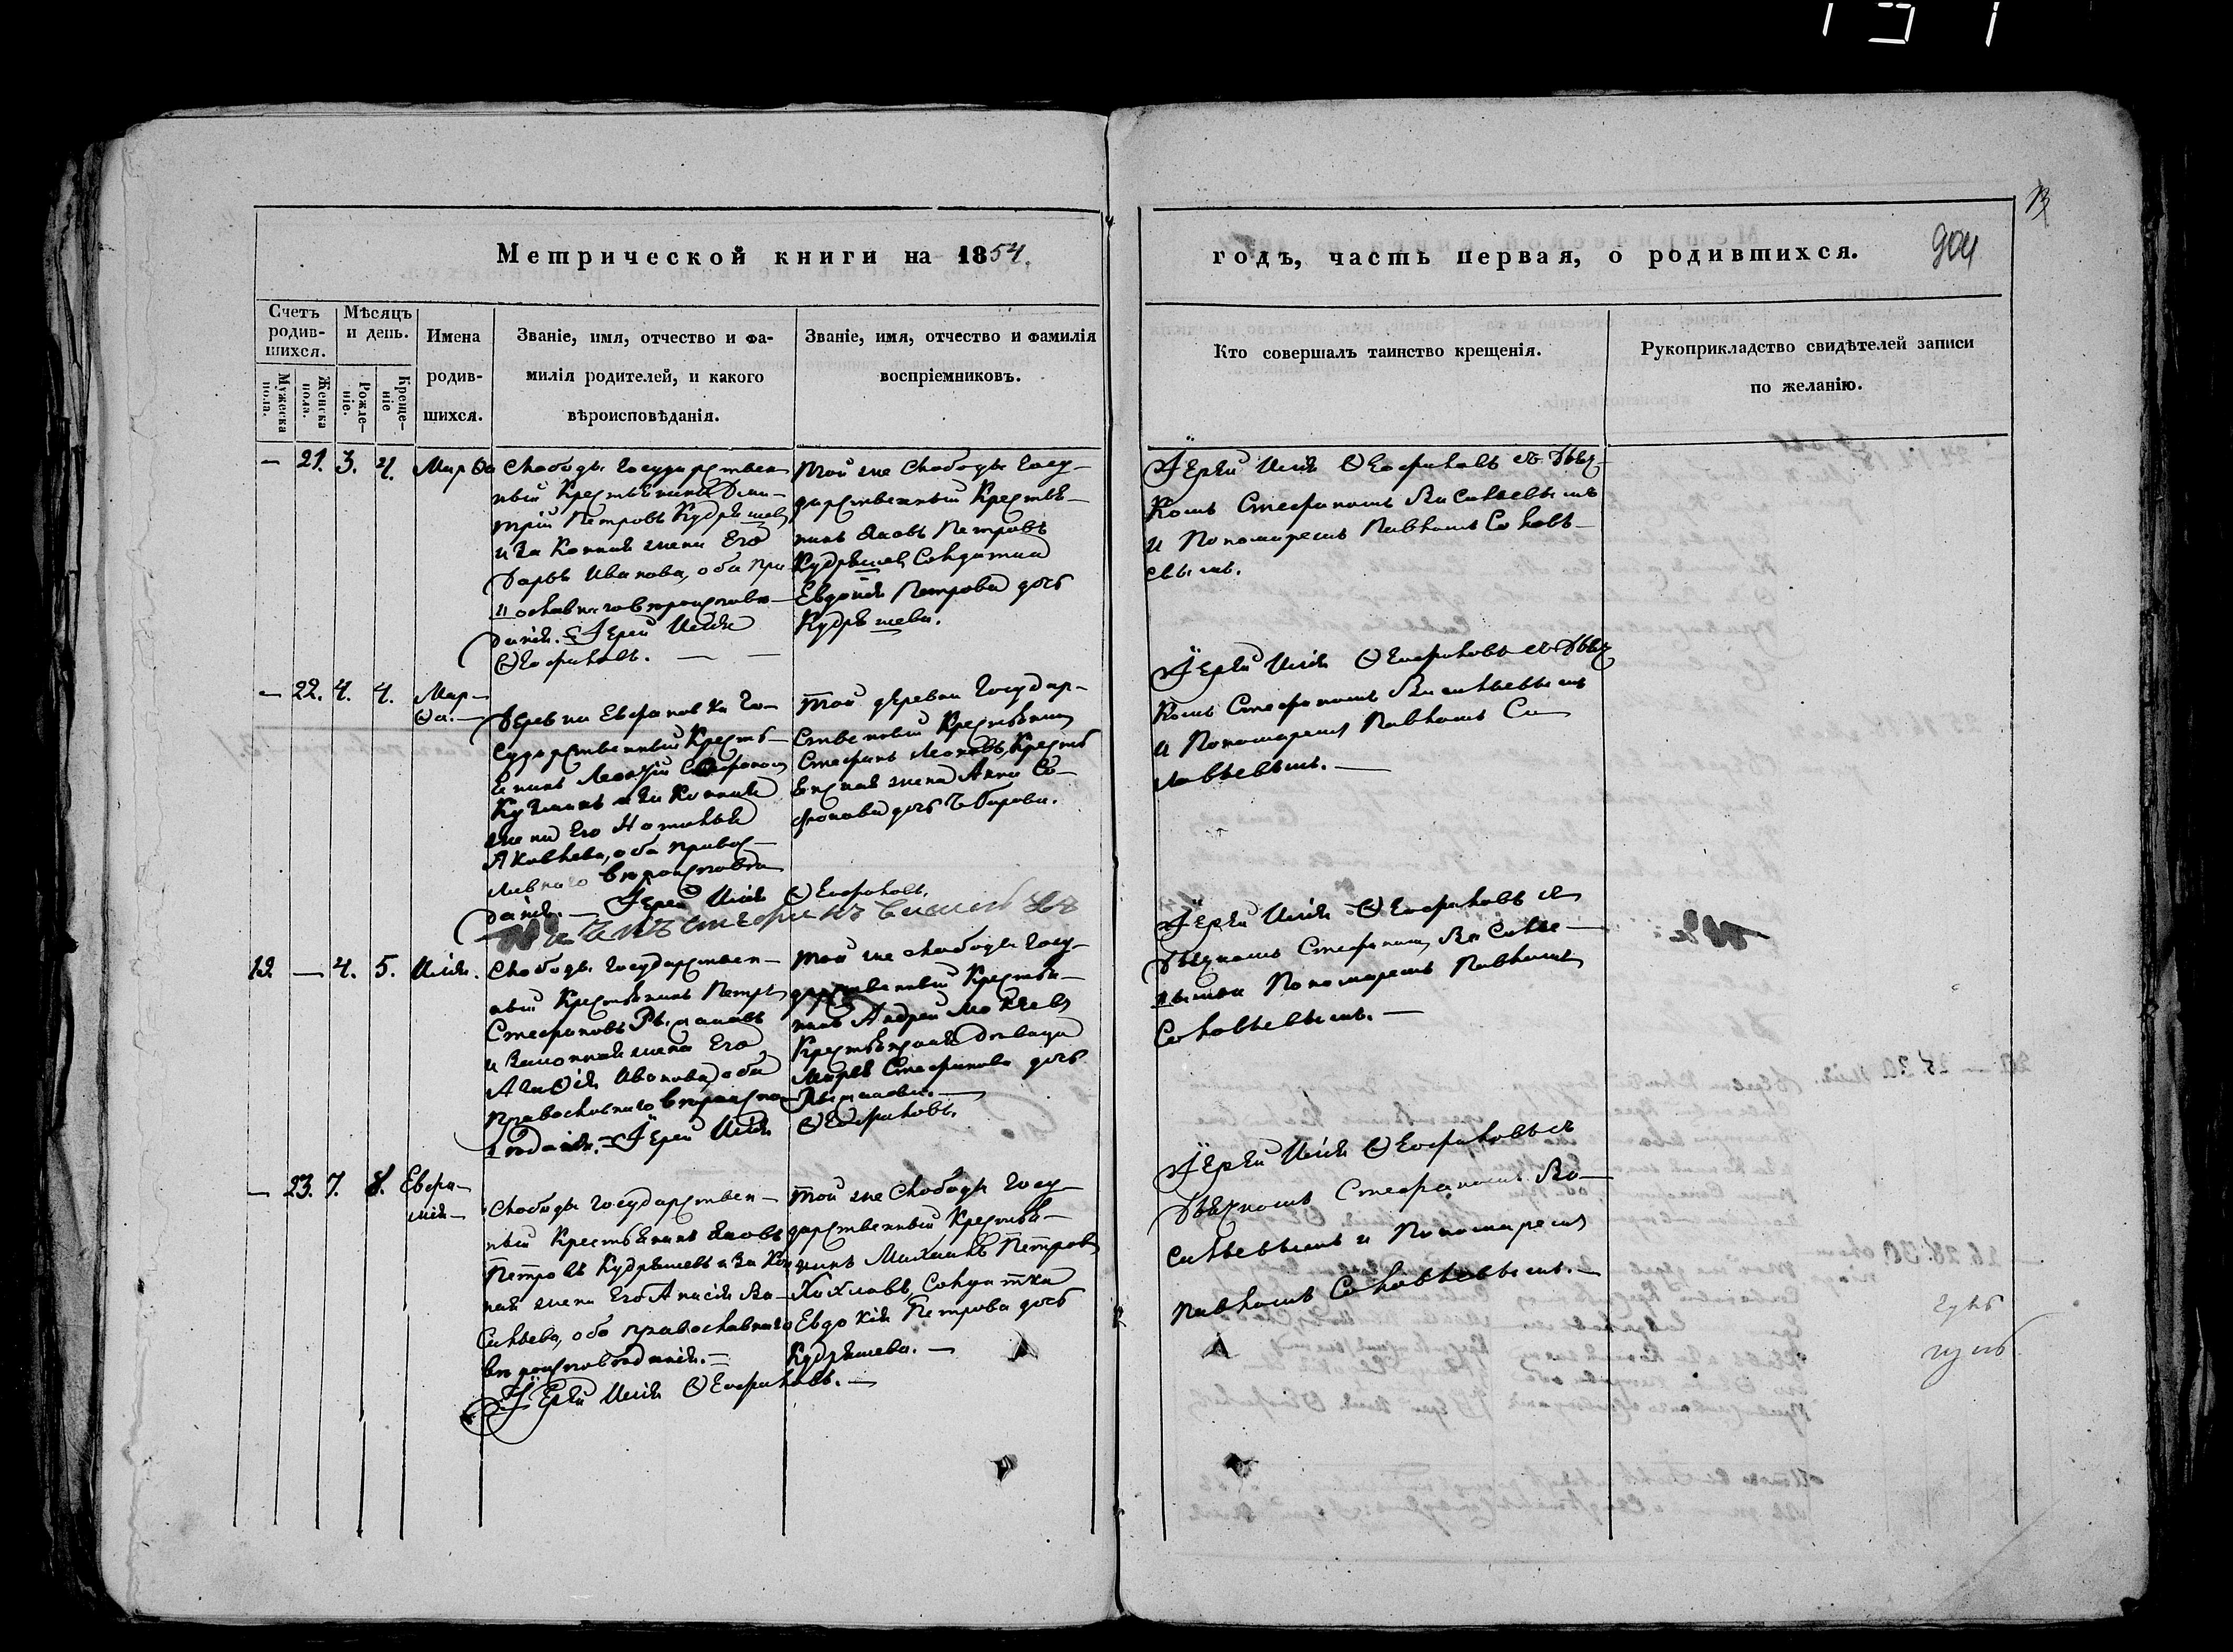 Метрической книги на 1854.
годъ, часть первая, о родившихся.
904
Счетъ родив-шихся.
Мѣсяцъ и день.
Мужеска пола.
Женска пола.
Рожде-ніе.
Креще-ніе
Имена
родив-
шихся.
Званіе, имя, отчество и фа-
милія родителей, и какого
вѣроисповѣданія.
Званіе, имя, отчество и фамилія
воспріемниковъ.
Кто совершалъ таинство крещенія.
Рукоприкладство свидѣтелей записи
по желанію.
— 21. 3. 4. Марѳа
Слободы Государствен-
ный Крестьянинъ Дми-
трій Петровъ Кудряшев
и Законная жена Его
Дарья Иванова, оба пра
вославнаго вѣроисповѣ-
данія. Іерей Илія
Ѳеофиловъ. — —
Той же Слободы Госу-
дарственный Крестья-
нинъ Яковъ Петровъ
Кудряшев, Солдатка
Евдокія Петрова дочь
Кудряшева.
Іерей Илія Ѳеофиловъ съ Дья-
комъ Стефаномъ Васильевымъ
и Пономаремъ Павломъ Соловь-
евымъ.
— 22. 4. 4. Мар-
ѳа. —
Деревни Евфановки Го-
сударственный Кресть-
янинъ Стефанов
и Законная
жена Его Наталья
Яковлева, оба правос-
лавнаго вѣроисповѣ
данія. — Іерей Илія Ѳеофиловъ.
Той деревни Государ-
ственный Крестьянин
Стефанъ Крестья
янская жена Анна Со-
фонова дочь
Іерей Илія Ѳеофиловъ съ Дья
комъ Стефаномъ Васильевымъ
и Пономарем Павломъ Со
ловьевымъ. —
12 — 4. 5. Илія.
Слободы Государствен-
ный Крестьянинъ Петръ
Стефановъ
и Законная жена Его
Агаѳія Иванова, оба
Православнаго вѣроиспо
вѣданія. — Іерей Илія Ѳеофиловъ.
Той же слободы Госу-
дарственный Крестья-
нинъ Андрей
Крестьянская Дѣвица
Марья Стефанова дочь
Іерей Илія Ѳеофиловъ съ
Дьякомъ Стефаномъ Василье-
вымъ и Пономаремъ Павломъ
Соловьевымъ. —
— 23. 7. 8. Евфи-
мія —
Слободы Государствен-
ный Крестьянинъ Яковъ
Петровъ Кудряшевъ и Закон
ная жена Его Анисія Ва-
сильева, оба православнаго
вѣроисповѣданія. —
Іерей Илія Ѳеофиловъ. —
Той же Слободы Госу-
дарственный Крестья-
нинъ Михаилъ Петров
Солдатка
Евдокія Петрова дочь
Кудряшева. —
Іерей Илія Ѳеофиловъ съ
Дьякомъ Стефаномъ Ва-
сильевымъ и Пономарем
Павломъ Соловьевымъ. —